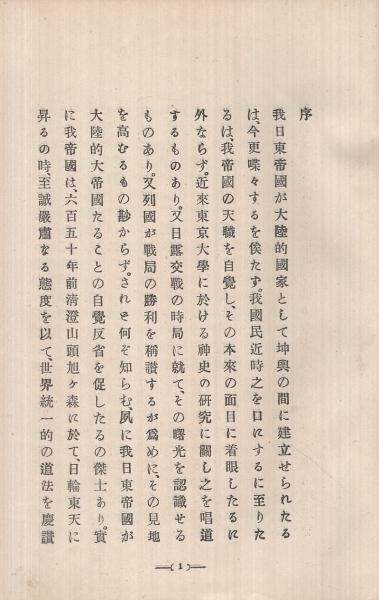 序
我日東帝國が大陸的國家として坤輿の間に建立せられたる
は、今更喋々するを俟たず。我國民近時之を口にするに至りた
るは、我帝國の天職を自覺し、その本來の面目に着眼したるに
外ならず。近來東京大學に於ける神史の研究に關し之を唱道
するものあり。又日露交戰の時局に就て、その曙光を認識せる
ものあり。又列國が戰局の勝利を稱讃するが爲めに、その見地
を高むるもの尠からず。されど何ぞ知らむ、夙に我日東帝國が
大陸的大帝國たることの自覺反省を促したるの傑士あり。實
に我帝國は、六百五十年前清澄山頭旭ヶ森に於て、日輪東天に
昇るの時、至誠嚴肅なる態度を以て、世界統一的の道法を慶讃
1